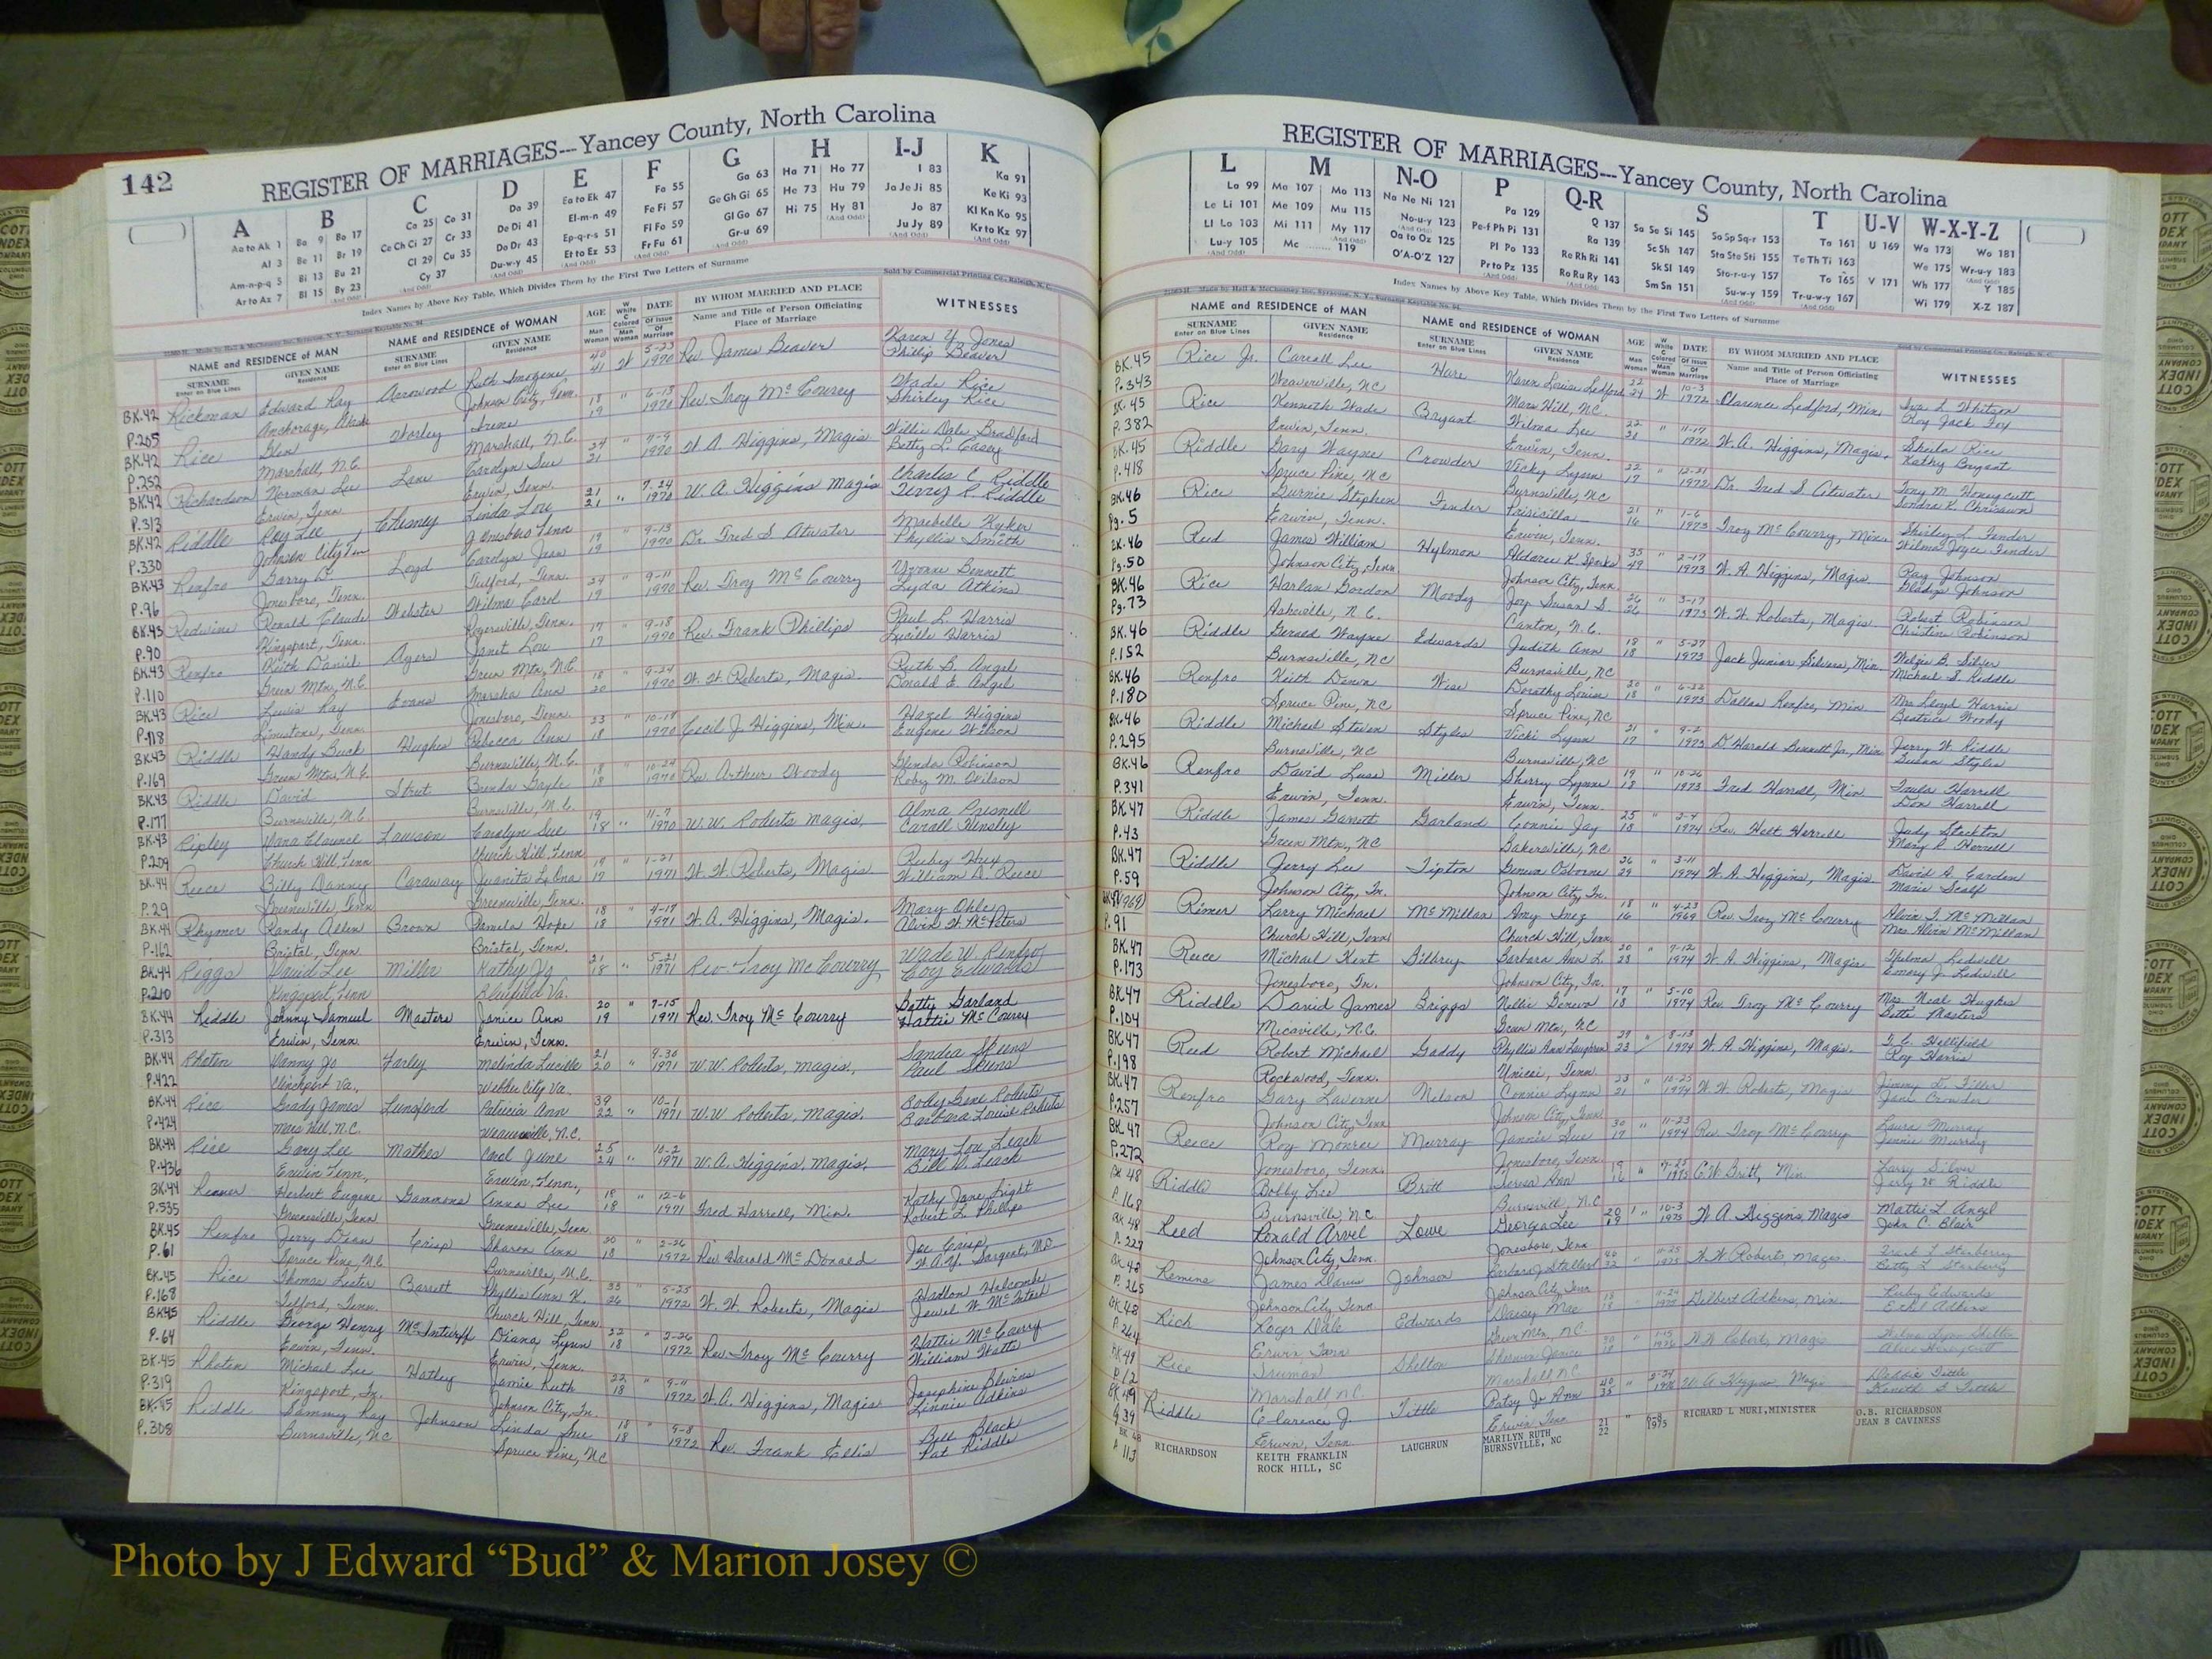 142
REGISTER OF MARRIAGES---Yancey County, North Carolina
A B C D E F G H I-J K
Aa to Ak 1 Ba 9 Bo 17 Ca 25 Co 31 Da 39 Ea to Ek 47 Fa 55 Ga 63 Ha 71 Ho 77 I 83 Ka 91
Al 3 Be 11 Br 19 Ce Ch Ci 27 Cr 33 De Di 41 El-m-n 49 Fe Fi 57 Ge Gh Gi 65 He 73 Hu 79 Ja Je Ji 85 Ke Ki 93
Am-n-p-q 5 Bi 13 Bu 21 Cl 29 Cu 35 Do Dr 43 Ep-q-r-s 51 Fl Fo 59 Gl Go 67 Hi 75 Hy 81 Jo 87 Kl Kn Ko 95
Ar to Az 7 Bl 15 By 23 Cy 37 Du-w-y 45 Et to Ez 53 Fr Fu 61 Gr-u 69 Ju Jy 89 Kr to Kz 97
Index Names by Above Key Table, Which Divides Them by the First Two Letters of Surname
Sold by Commercial Printing Co., Raleigh, N. C.
NAME and RESIDENCE OF MAN NAME and RESIDENCE OF WOMAN AGE DATE BY WHOM MARRIED AND PLACE WITNESSES
SURNAME GIVEN NAME SURNAME GIVEN NAME Name and Title of Person Officiating
Enter on Blue Lines Residence Enter on Blue Lines Residence Place of Marriage
BK.42 Rickman Edward Ray Arrowood Ruth Imogene 40 W 5-23 Rev. James Beaver Karen Y. Jones
P.205 Anchorage, Johnson City, Tenn. 41 1970 Phillip Beaver
BK.42 Rice Glen Worley Irene 18 " 6-13 Rev. Troy McCourry Wade Rice
P.252 Marshall, N.C. Marshall, N.C. 19 1970 Shirley Rice
BK.42 Richardson Norman Lee Lane Carolyn Sue 24 " W. A. Higgins, Magis Willie Dale Bradford
P.313 Erwin, Tenn. Erwin, Tenn. 21 1970 Betty L. Casey
BK.42 Riddle Roy Lee Chesney Linda Lou 21 " 7-24 W. A. Higgins Magis Charles C. Riddle
P.330 Johnson City Tn Jonesboro Tenn 21 1970 Terry R. Riddle
BK.43 Renfro Garry D. Loyd Carolyn Jean 19 " 9-13 Dr. Fred S. Atwater Maebelle Kyker
P.96 Jonesboro, Tenn. Telford, Tenn. 19 1970 Phyllis Smith
BK.43 Redwine Ronald Claude Webster Wilma Carol 24 " 9-11 Rev. Troy McCourry Yvonne Bennett
P.90 Kingsport, Tenn. Rogersville, Tenn. 19 1970 Lyda Atkins
BK.43 Renfro Keith Daniel Ayers Janet Lou 17 " 9-18 Rev. Frank Phillips Paul L. Harris
P.110 Green Mtn, N.C. Green Mtn, N.C. 17 1970 Lucille Harris
BK.43 Rice Lewis Ray Evans Marsha Ann 18 " 9-24 W. W. Roberts, Magis. Ruth B. Angel
P.118 Limestone, Tenn. Jonesboro, Tenn. 20 1970 Donald E. Angel
BK.43 Riddle Handy Buck Hughes Rebecca Ann 23 " 10-18 Cecil J. Higgins, Min. Hazel Higgins
P.169 Green Mtn, N.C. Burnsville, N.C. 18 1970 Eugene Wilson
BK.43 Riddle David Street Brenda Gayle 18 " 10-24 Rev. Arthur Woody Glenda Robinson
P.177 Burnsville, N.C. Burnsville, N.C. 18 1970 Roby M. Wilson
BK.43 Ripley Lawson Carolyn Sue 19 " 11-7 W.W. Roberts Magis, Alma Prisnell
P.209 Church Hill, Tenn Church Hill, Tenn 18 1970 Carall Kinsley
BK.44 Reece Billy Danny Caraway Juanita 19 " 1-21 W. W. Roberts, Magis Ruby Huy
P.29 Greeneville, Tenn. Greeneville, Tenn. 17 1971 William D. Reece
BK.44 Rhymer Randy Allen Brown Pamela Hope 18 " 4-17 W. A. Higgins, Magis. Mary Ohle
P.162 Bristol, Tenn Bristol, Tenn. 18 1971 Alvin W. McPeters
BK.44 Riggs David Lee Miller Kathy Jo 21 " 5-21 Rev. Troy McCourry, Wade W. Renfro
P.210 Kingsport, Tenn Bluefield Va. 18 1971 Coy Edwards
BK.44 Riddle Johnny Samuel Masters Janice Ann 20 " 7-15 Rev. Troy McCourry Betty Garland
P.313 Erwin, Tenn Erwin, Tenn. 19 1971 Hattie McCourry
BK.44 Rhoten Danny Jo Farley Melinda Lucille 21 " 9-30 W.W. Roberts, Magis., Sandra Skeens
P.422 Clinchport Va. Webber City Va. 20 1971 Paul Skeens
BK.44 Rice Grady James Lunsford Patricia Ann 39 " 10-1 W.W. Roberts, Magis, Bobby Gene Roberts
P.424 Mars Hill, N.C. Weaverville, N.C. 22 1971 Barbara Louise Roberts
BK.44 Rice Gary Lee Mathes Carol June 25 " 10-2 W.A. Higgins, Magis, Mary Lou Leach
P.436 Erwin Tenn, Erwin, Tenn, 24 1971 Bill D. Leach
BK.44 Reaner Herbert Eugene Gammons Anna Lee 18 " 12-6 Fred Harrell, Min. Kathy Jane Light
P.535 Greeneville, Tenn Greeneville, Tenn 18 1971 Robert L. Phillips
BK.45 Renfro Jerry Dean Crisp Sharon Ann 20 " 2-26 Rev. Harold McDonald Joe Crisp
P.61 Spruce Pine, N.C. Burnsville, N.C. 18 1972 Sargent, M.D.
BK.45 Rice Thomas Lester Barrett Phyllis Ann K. 33 " 5-25 W. W. Roberts, Magis Hadlon Holcombe
P.168 Telford, Tenn. Church Hill, Tenn. 26 1972 Jewel W. McIntosh
BK45 Riddle George Henry McInturff Diana Lynn 22 " 2-26 Rev Troy McCourry Hattie McCourry
P.64 Erwin, Tenn. Erwin, Tenn. 18 1972 William Watts
BK.45 Rhoten Michael Lee Hatley Jamie Ruth 22 " 9-11 W. A. Higgins, Magis Josephine Blevins
P.319 Kingsport, Tn. Johnson City, Tn. 18 1972 Linnie Adkins
BK.45 Riddle Sammy Ray Johnson Linda Sue 18 " 9-8 Rev. Frank Ellis Bill Black
P.308 Burnsville, NC Spruce Pine, NC 18 1972 Pat Riddle
REGISTER OF MARRIAGES---Yancey County, North Carolina
L M N-O P Q-R S T U-V W-X-Y-Z
La 99 Ma 107 Mo 113 Na Ne Ni 121 Pa 129 Q 137 Sa Se Si 145 Sa Sp Sq-r 153 Ta 161 U 169 Wa 173 Wo 181
Le Li 101 Me 109 Mu 115 No-u-y 123 Pe-f Ph Pi 131 Ra 139 Sc Sh 147 Sta Ste Sti 155 Te Th Ti 163 We 175 Wr-u-y 183
Ll Lo 103 Mi 111 My 117 Oa to Oz 125 Pl Po 133 Re Rh Ri 141 Sk Sl 149 Sto-r-u-y 157 To 165 V 171 Wh 177 Y 185
Lu-y 105 Mc 119 O'A-O'Z 127 Pr to Pz 135 Ro Ru Ry 143 Sm Sn 151 Su-w-y 159 Tr-u-w-y 167 Wi 179 X-Z 187
Index Names by Above Key Table, Which Divides Them by the First Two Letters of Surname
NAME and RESIDENCE OF MAN NAME and RESIDENCE OF WOMAN AGE DATE BY WHOM MARRIED AND PLACE WITNESSES
SURNAME GIVEN NAME SURNAME GIVEN NAME Name and Title of Person Officiating
Enter on Blue Lines Residence Enter on Blue Lines Residence Place of Marriage
BK.45 Rice Jr. Carroll Lee Hare Karen Louise Ledford 22 W 10-3 Clarence Ledford, Min. Iva L. Whitson
P.343 Weaverville, NC Mars Hill, NC. 24 1972 Roy Jack Fox
BK.45 Rice Kenneth Wade Bryant Wilma Lee 22 " 11-17 W.A. Higgins, Magis. Sheila Rice
P.382 Erwin, Tenn. Erwin, Tenn. 21 1972 Kathy Bryant
BK.45 Riddle Gary Wayne Crowder Vicky Lynn 22 " 12-21 Dr. Fred S. Atwater Tony M. Honeycutt
P.418 Spruce Pine, NC Burnsville, NC 17 1972 Sondra K. Chrisawn
BK.46 Rice Burnie Stephen Fender Prisicilla 21 " 1-6 Troy McCourry, Min. Shirley L. Fender
Pg.5 Erwin, Tenn. Erwin, Tenn. 16 1973 Wilma Joyce Fender
BK.46 Reed James William Hylmon K. Sparks 35 " 2-17 W. A. Higgins, Magis Ray Johnson
Pg.50 Johnson City, Tenn. Johnson City, Tenn. 49 1973 Gladys Johnson
BK.46 Rice Harlan Gordon Moody Joy Susan S. 26 " 3-17 W. W. Roberts, Magis. Robert Robinson
Pg.73 Asheville, N.C. Canton, N.C. 26 1973 Christine Robinson
BK.46 Riddle Gerald Wayne Edwards Judith Ann 18 " 5-27 Jack Junior Silvers, Min. B. Silver
P.152 Burnsville, NC Burnsville, NC 18 1973 Michael S. Riddle
BK.46 Renfro Keith Wise Dorothy Louise 20 " 6-22 Dallas Renfro, Min Mrs Lloyd Harris
P.180 Spruce Pine, NC Spruce Pine, NC 18 1973 Beatrice Woody
BK.46 Riddle Michael Steven Styles Vicki Lynn 21 " 9-2 D. Harold Bennett Jr., Min Jerry W. Riddle
P.295 Burnsville, NC Burnsville, NC 17 1973 Susan Styles
BK.46 Renfro David Luse Miller Sherry Lynne 19 " 10-26 Fred Harrell, Min Trula Harrell
P.341 Erwin, Tenn. Erwin, Tenn. 18 1973 Don Harrell
BK.47 Riddle James Garrett Garland Connie Jay 25 " 2-4 Rev. Holt Harrell Judy Stockton
P.43 Green Mtn, NC Bakersville, NC 18 1974 Mary P. Harrell
BK.47 Riddle Jerry Lee Tipton Geneva Osborne 26 " 3-11 W. A. Higgins, Magis David A. Carden
P.59 Johnson City, Tn. Johnson City, Tn. 29 1974 Marie Scalf
(1969) Rimer Larry Michael McMillan Amy Inez 18 " 4-23 Rev. Troy McCourry Alvin T. McMillan
P.91 Church Hill, Tenn Church Hill, Tenn. 16 1969 Mrs. Alvin McMillan
BK.47 Reece Michael Kent Dilbry Barbara Ann L. 20 " 7-12 W. A. Higgins, Magis Thelma Ledwell
P.173 Jonesboro, Tn. Johnson City, Tn. 23 1974 Emory J. Ledwell
BK.47 Riddle David James Briggs Nellie Geneva 17 " 5-10 Rev. Troy McCourry Mrs. Neal Hughes
P.104 Micaville, N.C. Green Mtn, NC 18 1974 Bette Masters
BK.47 Reed Robert Michael Gaddy Phyllis Ann Laughren 29 8-13 W. A. Higgins, Magis. T. C. Hollifield
P.198 Rockwood, Tenn. Unicoi, Tenn. 23 1974 Roy Harris
BK.47 Renfro Gary Laverne Nelson Connie Lynn 23 " 10-25 W. W. Roberts, Magis Jimmy D. Filler
P.257 Johnson City, Tenn Johnson City, Tenn 21 1974 Jane Crowder
BK.47 Reece Roy Monroe Murray Jannie Sue 30 " 11-23 Rev Troy McCourry Laura Murray
P.272 Jonesboro, Tenn. Jonesboro, Tenn. 17 1974 Jennie Murray
BK 48 Riddle Bobby Lee Britt Teresa Ann 19 " 7-25 C.W. Britt, Min. Larry Silver
P.168 Burnsville, N.C. Burnsvill, N.C 16 1975 Jerly W Riddle
BK 48 Reed Ronald Arvel Lowe Georga Lee 20 " 10-3 W A Higgins, Magis Mattie L Angel
P.227 Johnson City, Tenn. Jonesboro, Tenn 19 1975 John C. Blair
BK 48 Remine James Johnson Barbara J Stallard 46 " 11-25 W W Roberts, Magis. Frank L Starberry
P.265 Johnson City Tenn Johnson City, Tenn 32 1975 Betty L Starberry
BK.48 Rich Roger Dale Edwards Daisy Mae 18 Gilbert Adkins, Min. Ruby Edwards
P.264 Erwin, Tenn Green Mtn, N.C. 18 Ethel Adkins
Rice Truman Shelton Janice W W Roberts Magis Shelton
P.12 Marshall NC Marshall NC Honeycutt
BK 49 Riddle Clarence J. Tittle Patsy Jo Ann 40 " W A Higgins Magis Tittle
Erwin, Tenn Erwin Tenn 35 1976 Tittle
BK 48 RICHARDSON KEITH FRANKLIN LAUGHRUN MARILYN RUTH 21 " 6-8 RICHARD L MURI,MINISTER O.B. RICHARDSON
P 113 ROCK HILL, SC BURNSVILLE, NC 22 1975 JEAN B CAVINESS
Photo by J Edward “Bud” & Marion Josey ©